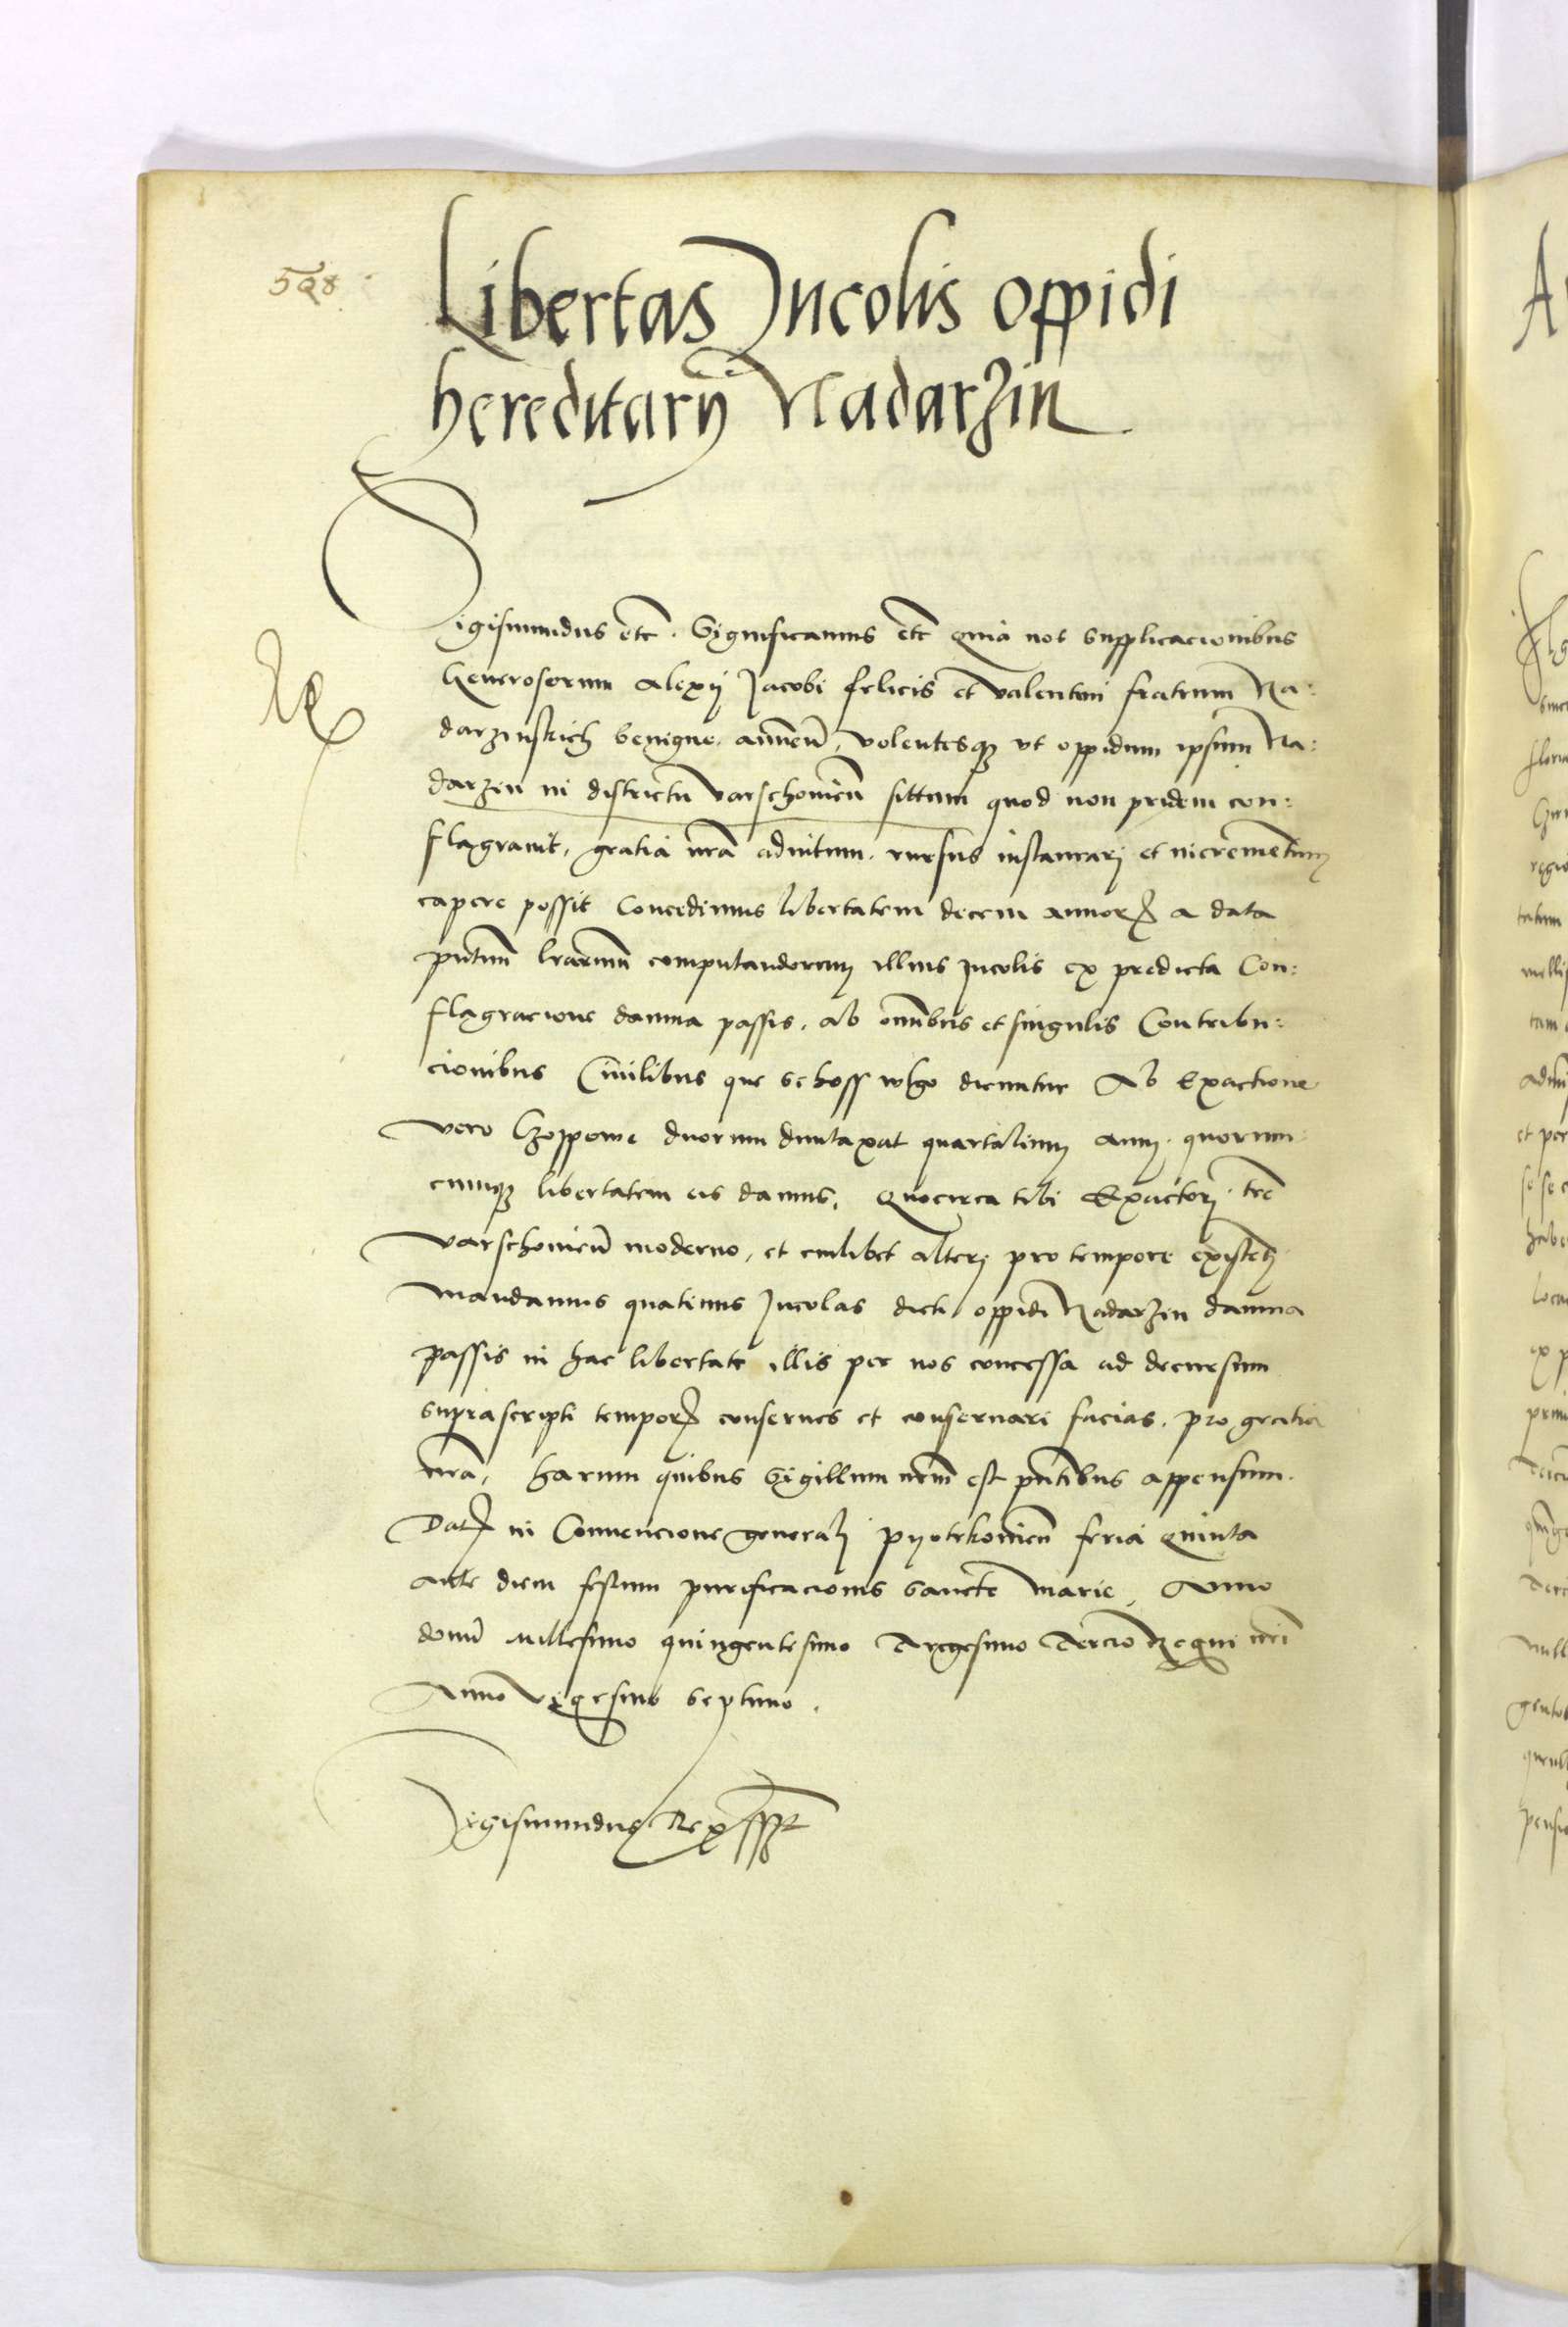 528
Libertas Incolis oppidi
hereditarij Nadarzin
Sigismundus etc. Significamus etc quia nos supplicacionibus
Generosorum Alexij Jacobi felicis et valentini fratrum Na:
darzinskich benigne annuen̄, volentesqȝ vt oppidum ipsum Na:
darzin in districtu varschouien̄ sittum quod non pridem con:
flagrauit, gratia nrā adiutum. rursus instaurarj et incremētum
capere possit Concedimus libertatem decem annorꝝ a data
pn̄tium lrārum computandorum illius Incolis ex predicta Con:
flagracione damna passis, ab om̄ibus et singulis Contribu:
cionibus Ciuilibus que schoss wlgo dicuntur Ab Exactione
vero Czoppowe duorum duntaxat quartalium annj. quorum:
cumqȝ libertatem eis damus, Quocirca tibi Exactorj. trē
varschouien̄ moderno, et cuilibet alterj pro tempore existētj
mandamus quatinus Incolas dicti oppidi Nadarzin damna
passis in hac libertate illis per nos concessa ad decursum
suprascripti temporꝭ conserues et conseruari facias. pro gratia
nrā, harum quibus Sigillum nrm̄ est pn̄tibus appensum.
Datꝭ in Conuencione generalj pyotrkouien̄ feria Quinta
ante diem festum purificacionis Sancte Marie, Anno
domī Millesimo quingentesimo Trigesimo Tercio Regni nrī
Anno vigesimo septimo.
Sigismundus Rex sspt